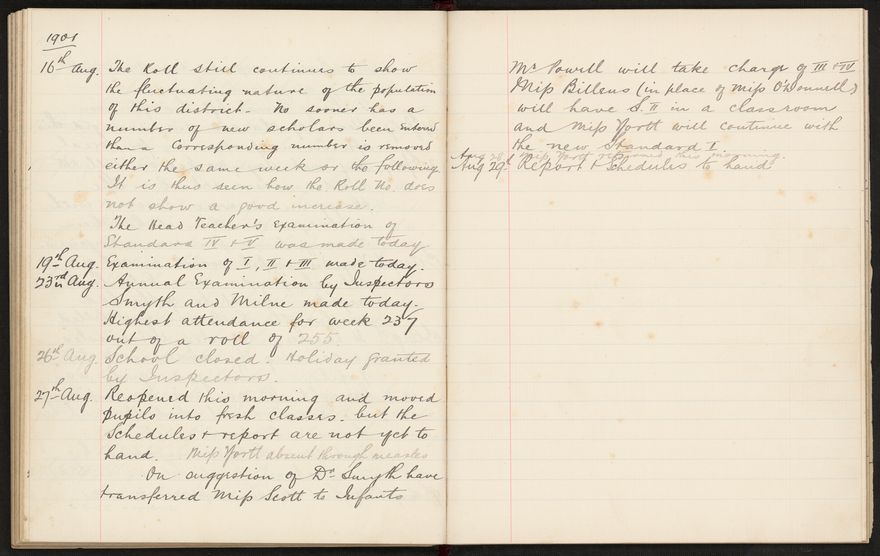 1901
16th Aug. The Roll still continues to show
the fluctuating nature of the population
of this district. No sooner has a
number of new scholars been entered
than a corresponding number is removed
either the same week or the following.
It is thus seen how the Roll No. does
not show a good increase.
The Head Teacher's Examination of
Standard IV + V was made today
19th Aug. Examination of I, II + III made today.
23rd Aug. Annual Examination by Inspectors
Smyth and Milne made today.
Highest attendance for week 237
out of a roll of 255.
26th Aug. School closed. Holiday granted
by Inspectors.
27th Aug. Reopened this morning and moved
pupils into fresh classes. but the
Schedules + report are not yet to
hand. Miss North absent through measles
On suggestion of Dr Smyth have
transferred Miss Scott to Infants
Mr Powell will take charge of III + IV
Miss Billens (in place of Miss O'Donnell)
will have S. II in a classroom
and Miss North will continue with
the new Standard I
Aug 28 Miss North returned this morning.
Aug 29th Report + Schedules to hand